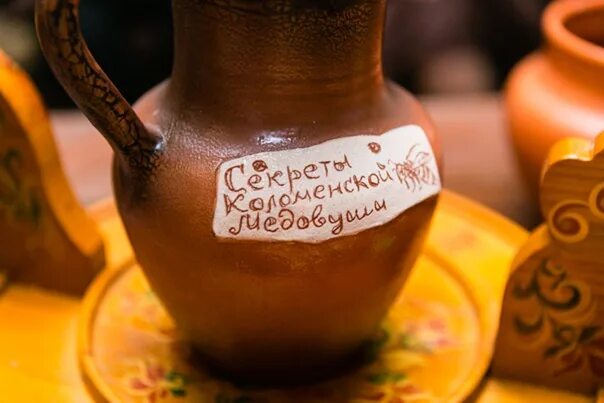 Секреты
Коломенской
Медовуши